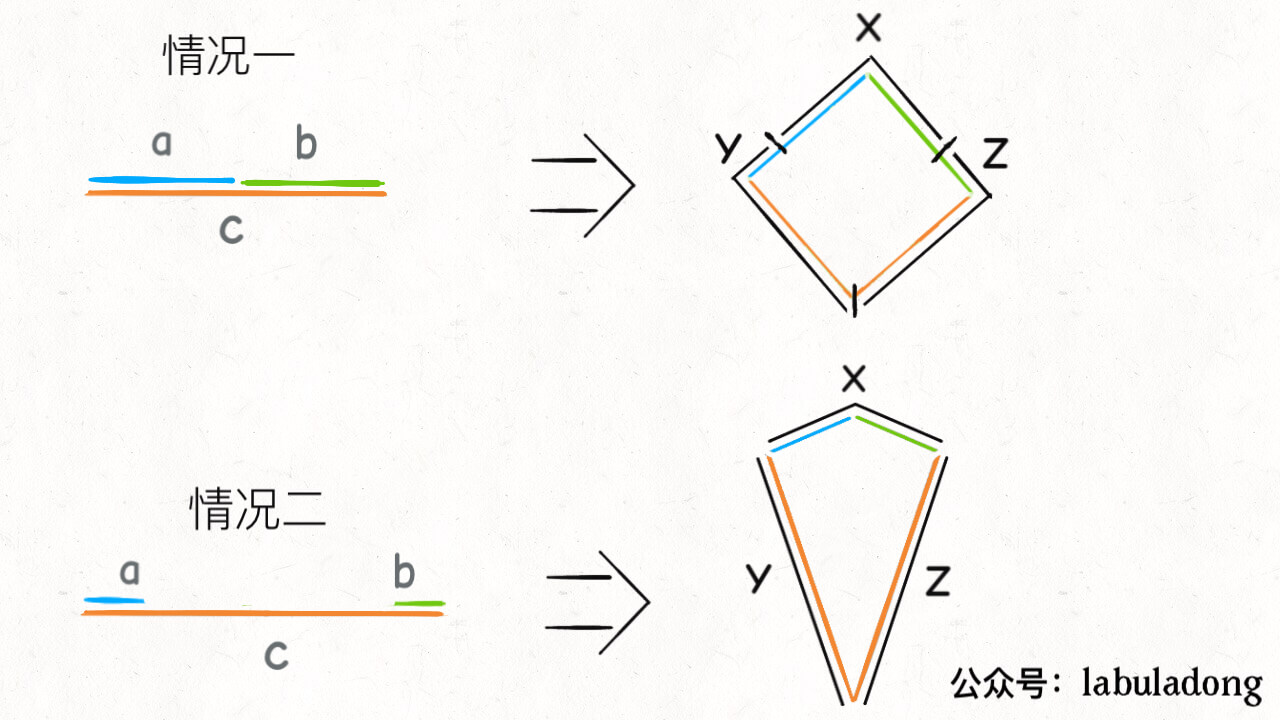 情况一
a b
c
X
Y Z
情况二
a b
c
X
Y Z
公众号：labuladong